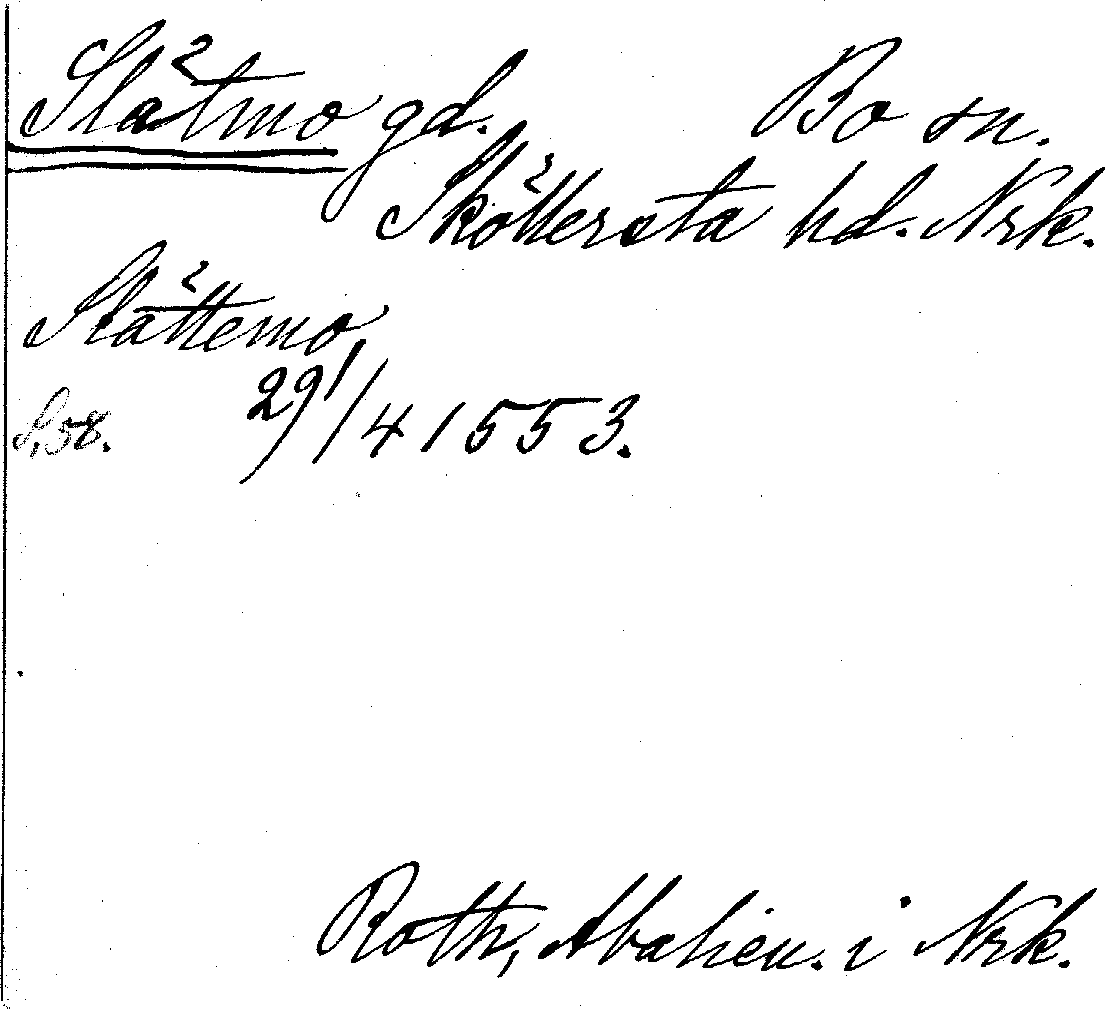 Slätmo gd. Bo sn.
Sköllersta hd. Nrk.
Slättemo
S. 58. 29/4 1553.
Roth, Abalien. i Nrk.